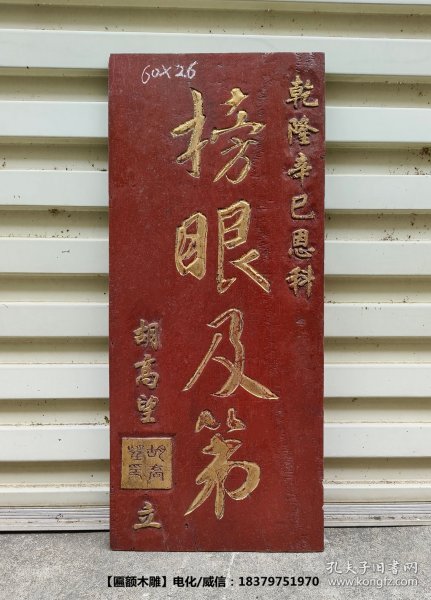 60X26
乾隆辛巳恩科
榜眼及第
胡高望
立
【匾额木雕】电化/威信：18379751970
孔夫子旧书网
www.kongfz.com